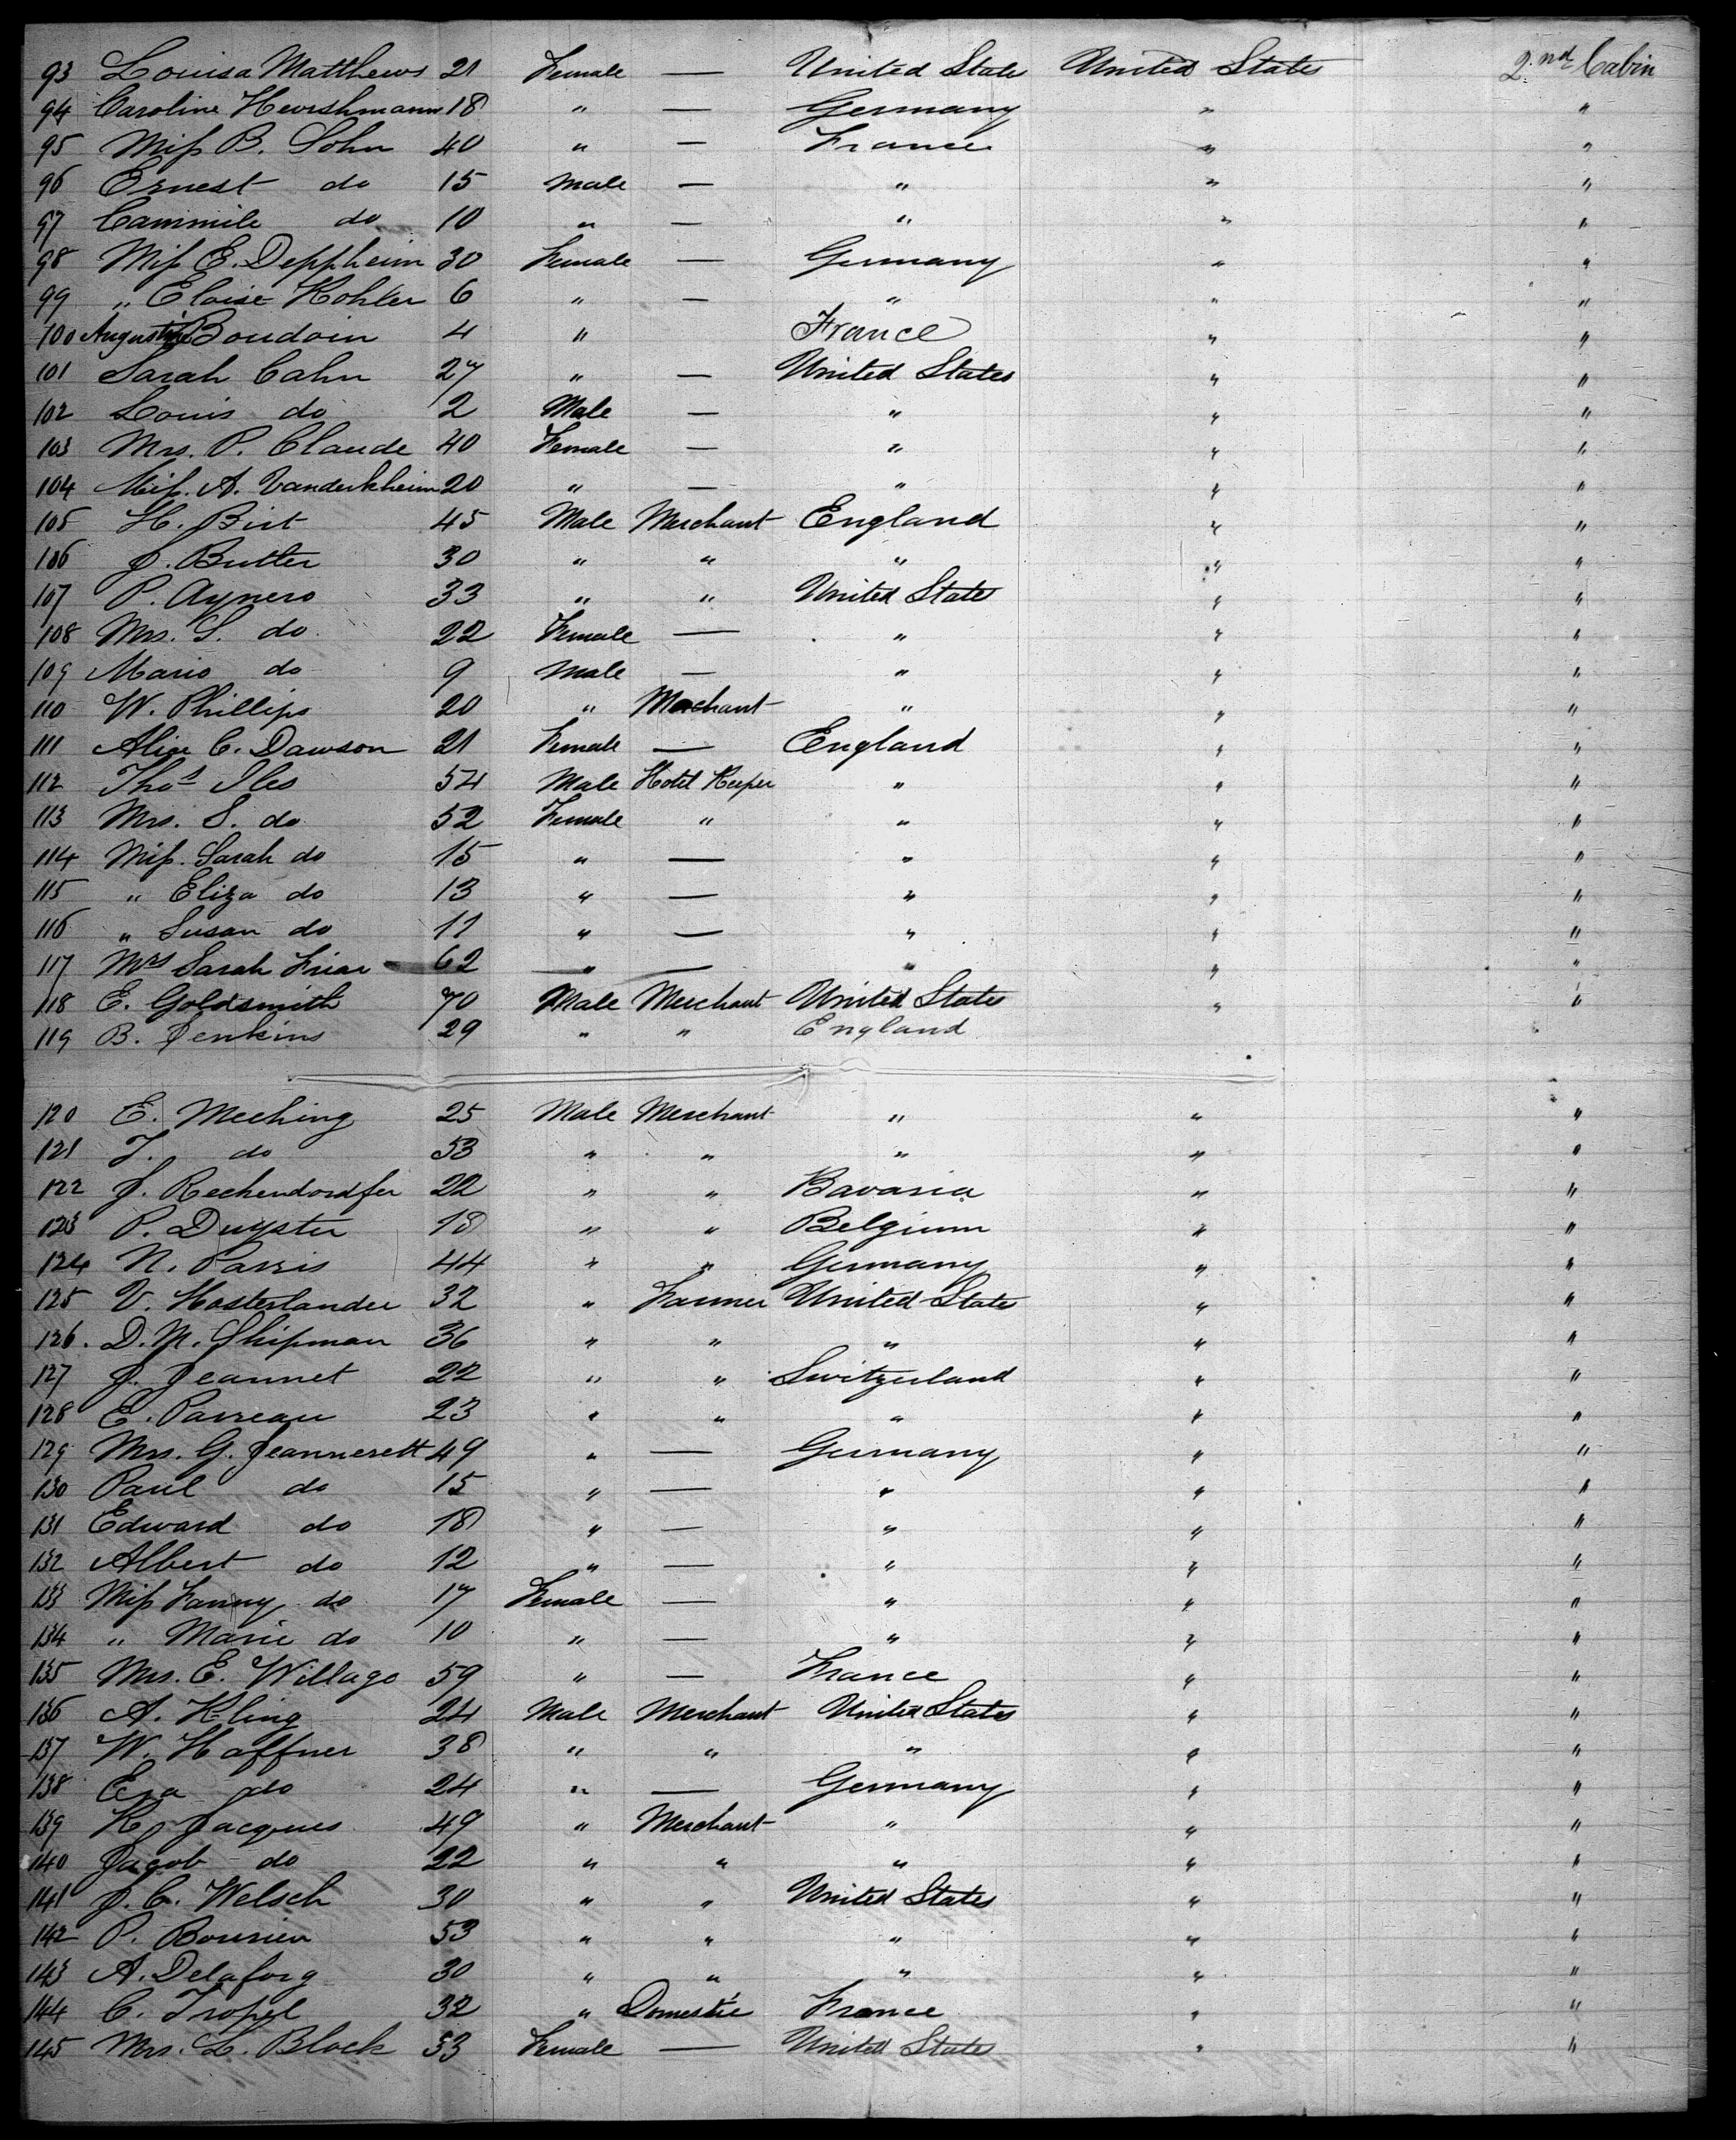 93 Louisa Matthews 21 Female — United States United States 2nd Cabin
94 Caroline Hewishmann 18 " — Germany " "
95 Miss B. Sohn 40 " — France " "
96 Ernest do 15 Male — " " "
97 Cammile do 10 " — " " "
98 Miss E. Deppheim 30 Female — Germany " "
99 " Eloise Kohler 6 " — " " "
100 Augustine Boudoin 4 " France " "
101 Sarah Cahn 27 " — United States " "
102 Louis do 2 Male — " " "
103 Mrs. P. Claude 40 Female — " " "
104 Miss. A. Vanderkheim 20 " — " " "
105 H. Birt 45 Male Merchant England " "
106 J. Butler 30 " " " " "
107 P. Aynero 33 " " United States " "
108 Mrs. S. do 22 Female — " " "
109 Mario do 9 Male — " " "
110 W. Phillips 20 " Merchant " " "
111 Alice C. Dawson 21 Female — England " "
112 Thos Iles 54 Male Hotel Keeper " " "
113 Mrs. S. do 52 Female " " " "
114 Miss. Sarah do 15 " — " " "
115 " Eliza do 13 " — " " "
116 " Susan do 11 " — " " "
117 Mrs Sarah Friar 62 " — " " "
118 E. Goldsmith 70 Male Merchant United States " "
119 B. Jenkins 29 " " England "
120 E. Meching 25 Male Merchant " " "
121 T. do 53 " " " " "
122 J. Rechendordfer 22 " " Bavaria " "
123 P. Duyster 18 " " Belgium " "
124 N. Parris 44 " " Germany " "
125 V. Hosterlander 32 " Farmer United States " "
126. D. M. Shipman 36 " " " " "
127 J. Jeannet 22 " " Switzerland " "
128 E. Parreau 23 " " " " "
129 Mrs. G. Jeannerett 49 " — Germany " "
130 Paul do 15 " — " " "
131 Edward do 18 " — " " "
132 Albert do 12 " — " " "
133 Miss Fanny do 17 Female — " " "
134 " Marie do 10 " — " " "
135 Mrs. E. Willago 59 " — France " "
136 A. Kling 24 Male Merchant United States " "
137 W. Haffner 38 " " " " "
138 do 24 " — Germany " "
139 K. Jacques 49 " Merchant " " "
140 Jacob do 22 " " " " "
141 J. C. Welsch 30 " " United States " "
142 P. Bourien 53 " " " " "
143 A. Delaforg 30 " " " " "
144 C. Tropel 32 " Domestic France " "
145 Mrs. L. Block 53 Female — United States " "